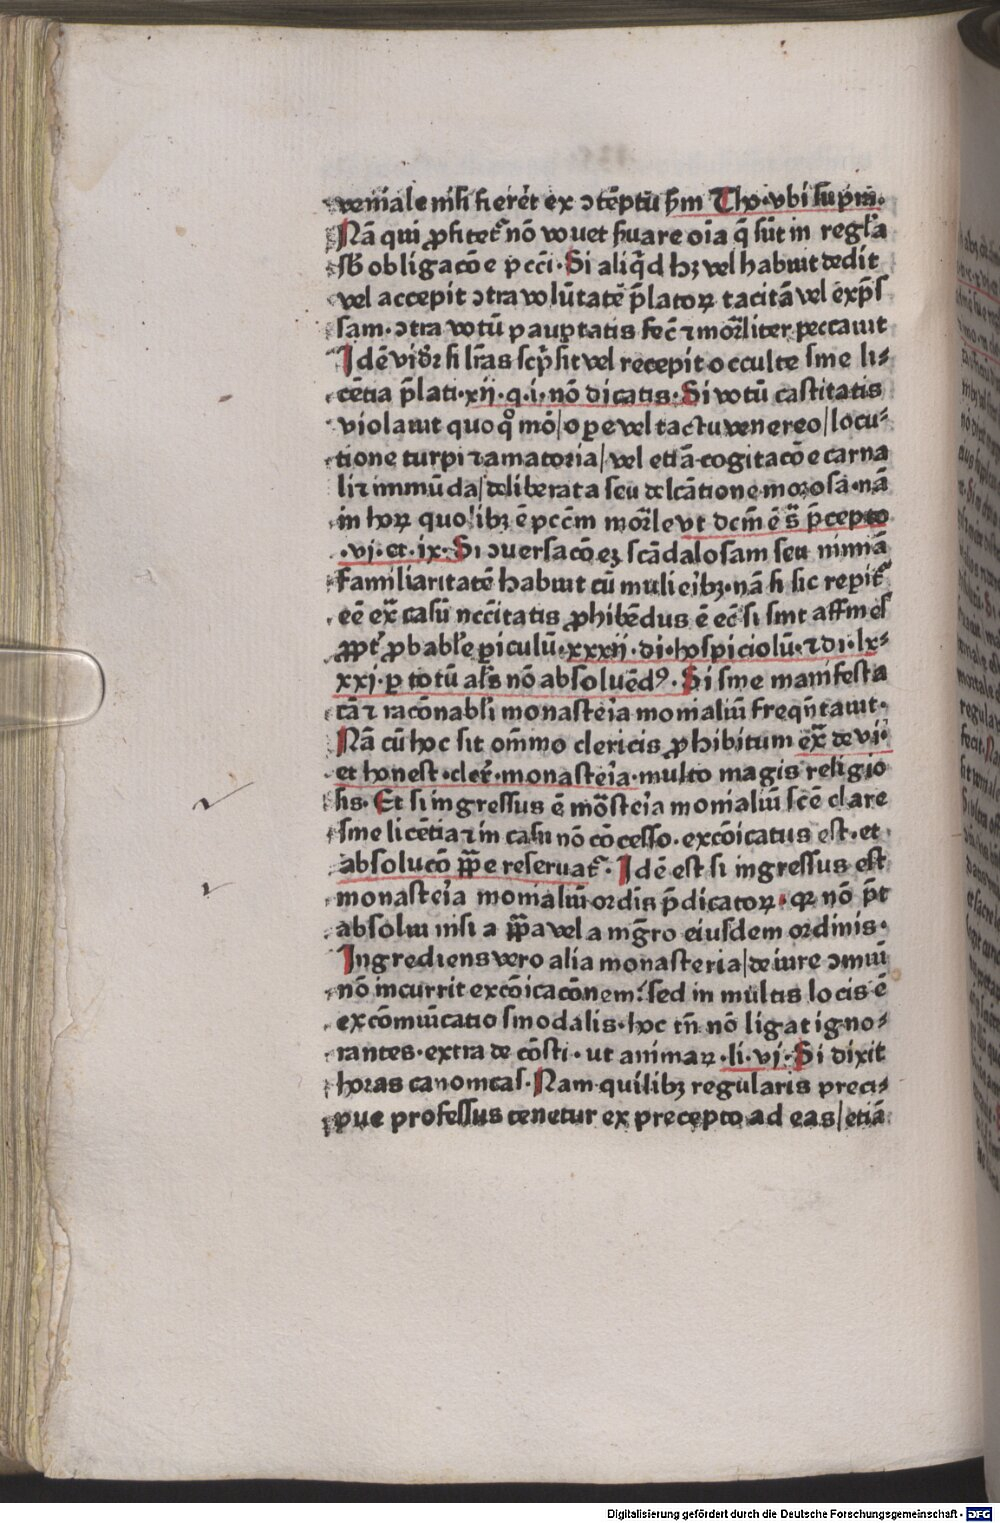 veniale nisi fieret ex ↄtēptū ßm Tho. vbi supra.
Nā qui ꝓfitet᷑ nō vouet ẜuare oīa q̄ sūt in regl̓a
sb̄ obligacōe pcci. Si aliq̄d hꝫ vel habuit dedit
vel accepit ↄtra volūtatē p̄latoꝝ tacitā vel exp̄s
sam. ↄtra votū paup̱tatis fec̄ ⁊ mor̄liter peccauit
Idē vid̄r si lr̄as scp̄sit vel recepit occulte sine li-
cētia p̄lati. xij. q. i. nō dicatis. Si votū castitatis
violauit quoqͦ mō/ oꝑe vel tactu venereo/ locu-
tione turpi ⁊ amatoria/ vel etiā cogitacōe carna
li ⁊ immūda/ deliberata seu delc̄atione morosa. nā
in hoꝝ quolibꝫ ē pccm̄ mor̄le vt dcm̄ ē s̄ p̄cepto
.vj. et. ix. Si ↄuersacōeꝫ scādalosam seu nimiā
familiaritatē habuit cū mulieribꝫ. nā si sic reperit᷑
eē ex̄ casū nccītatis ꝓhibēdus ē ec̄ si sint affines
ꝓpt̄ ꝓbabl̓e ꝑiculū. xxxij. di. hospiciolū. ⁊ di. lx-
xxj. ꝑ totū al̓s nō absoluēdꝰ. Si sine manifesta
cā ⁊ racōnabl̓i monasteria monialiū freqn̄tauit.
Nā cū hoc sit om̄ino clericis ꝓhibitum ex̄ de vi.
et honest. cler̄. monasteria. multo magis religio
sis. Et si ingressus ē mōsteria monialiū scē clare
sine licētia ⁊ in casu nō cōcesso. excōicatus est. et
absolucō pp̄e reseruat᷑. Idē est si ingressus est
monasteria monialiū ordīs p̄dicatoꝝ. qꝛ nō pōt
absolui nisi a pp̄a vel a mgr̄o eiusdem ordinis.
Ingrediens vero alia monasteria/ de iure ↄmuni
nō incurrit excōicacōnem: sed in multis locis ē
excōmūicatio sinodalis. hoc tn̄ nō ligat igno-
rantes. extra de cōsti. ut animaꝝ. li. vj. Si dixit
horas canonicas. Nam quilibꝫ regularis preci-
pue professus tenetur ex precepto ad eas/ etiā
Digitalisierung gefördert durch die Deutsche Forschungsgemeinschaft - DFG